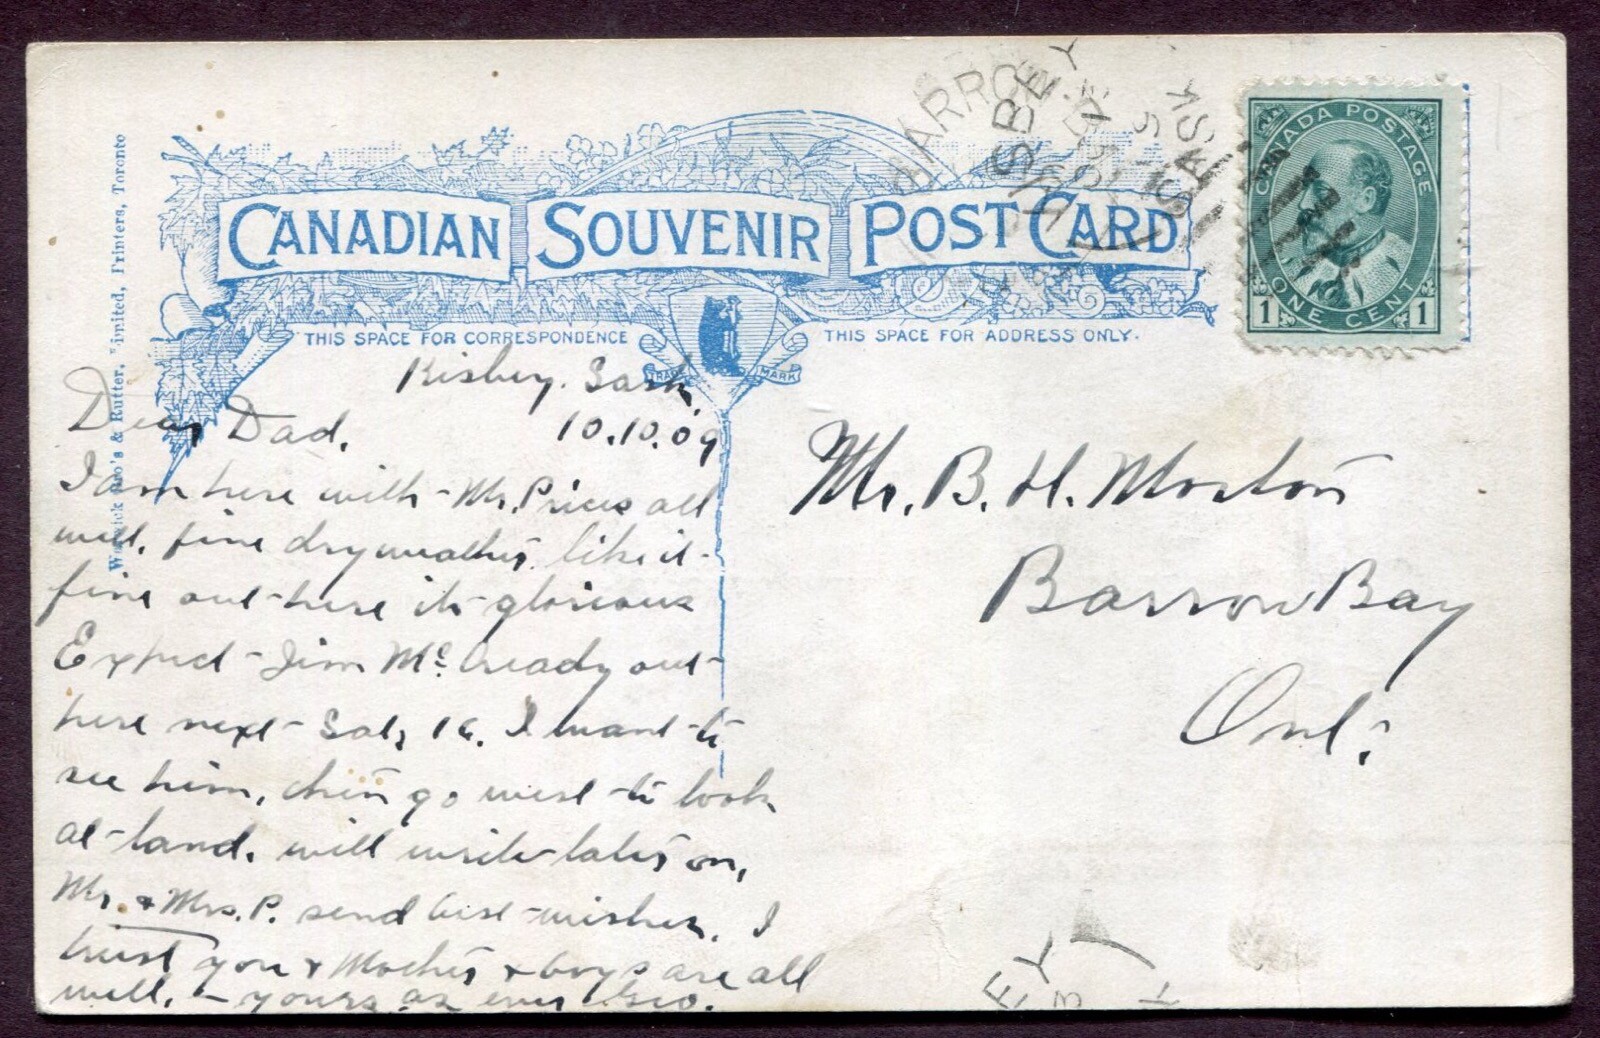 CANADIAN SOUVENIR POST CARD
THIS SPACE FOR CORRESPONDENCE
THIS SPACE FOR ADDRESS ONLY.
TRADE MARK
Warwick Bro's & Rutter, Limited, Printers, Toronto
CANADA POSTAGE
1 ONE CENT 1
BARROW
SASK
Kisbey. Sask,
10.10.09
Dear Dad,
I am here with Mr. Prices all
well, fine dry weather, like it
fine out here its glorious
Expect Jim Mc Cready out
here next Sat, 16. I want to
see him, then go west to look
at land. will write later on,
Mr. & Mrs. P. send best wishes. I
trust you & Mother & boys are all
well. – yours as ever Geo.
Mr. B. H. Morton
Barrow Bay
Ont.